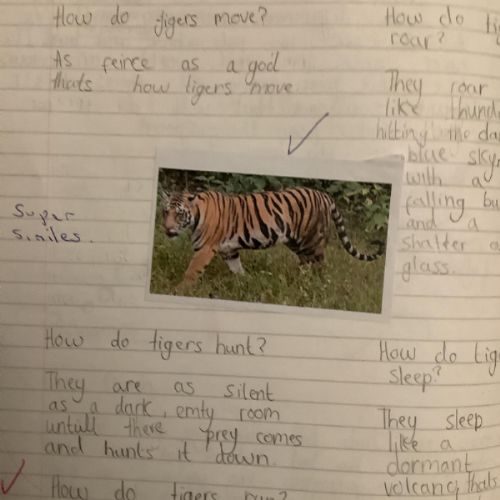 How do tigers move?
As feirce as a god
thats how tigers move
How do
roar?
They roar
like
hitting the
blue sky,
with a
falling
and a
shatter
glass.
Super
similes.
How do tigers hunt?
They are as silent
as a dark, emty room
untull there prey comes
and hunts it down.
How do
sleep?
They sleep
like a
dormant
volcano, thats
How do tigers run?